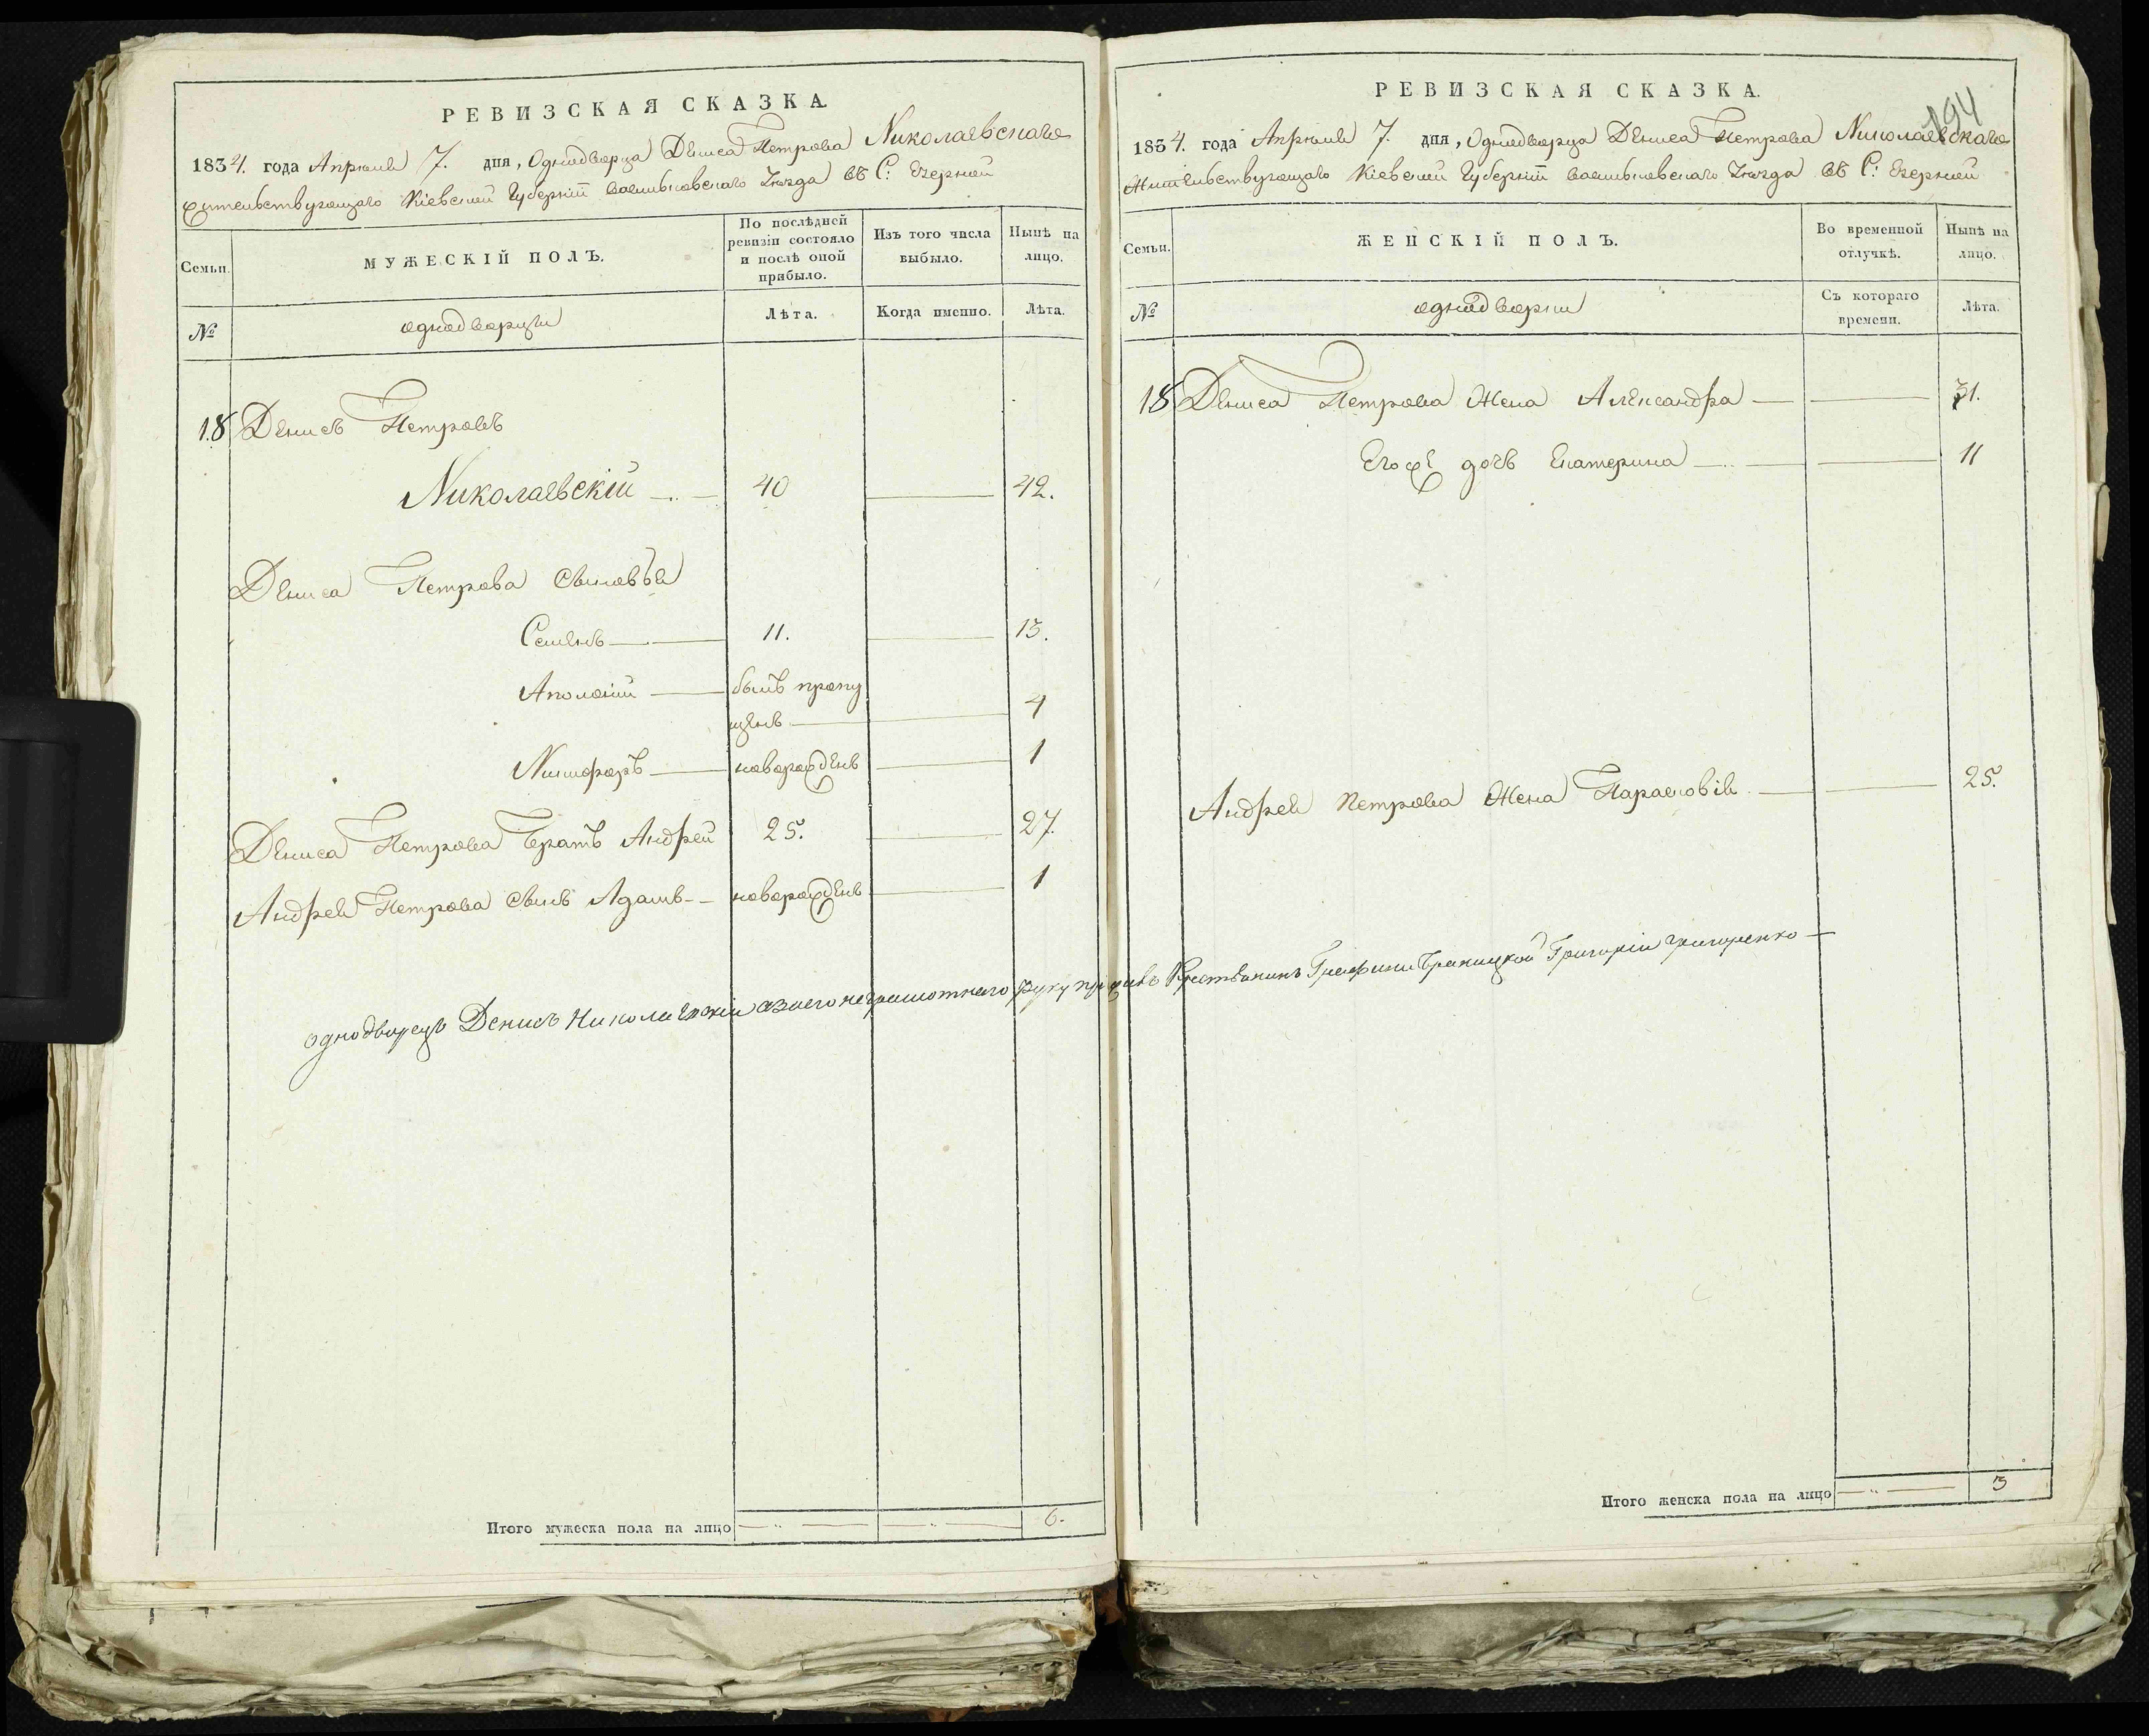 РЕВИЗСКАЯ СКАЗКА.
1834. года Апреля 7. дня, Однодворца Дениса Петрова Николаевскаго
жительствующаго Кіевской Губерніи Васильковскаго Уезда въ С: Езерной
Семьи.
МУЖЕСКІЙ ПОЛЪ.
По послѣдней ревизіи состояло и послѣ оной прибыло.
Изъ того числа выбыло.
Нынѣ на лицо.
№
однодворцы
Лѣта.
Когда именно.
Лѣта.
18 Денисъ Петровъ
Николаевскій 40 42.
Дениса Петрова сыновья
Семенъ 11. 13.
Аполоній былъ пропу
щенъ 4
Никифоръ новорожденъ 1
Дениса Петрова братъ Андрей 25. 27.
Андрея Петрова сынъ Адамъ новорожденъ 1
однодворецъ Денисъ Николаевскій а за его неграмотнаго руку приложилъ Крестьянинъ Графини Браницкой Григорій Григоренко
Итого мужеска пола на лицо 6.
194
РЕВИЗСКАЯ СКАЗКА.
1834. года Апреля 7. дня, Однодворца Дениса Петрова Николаевскаго
жительствующаго Кіевской Губерніи Васильковскаго Уезда въ С: Езерной
Семьи.
ЖЕНСКІЙ ПОЛЪ.
Во временной отлучкѣ.
Нынѣ на лицо.
№
однодворки
Съ котораго времени.
Лѣта.
18 Дениса Петрова жена Александра 31.
Егоже дочь Екатерина 11
Андрея Петрова жена Парасковія 25.
Итого женска пола на лицо 3